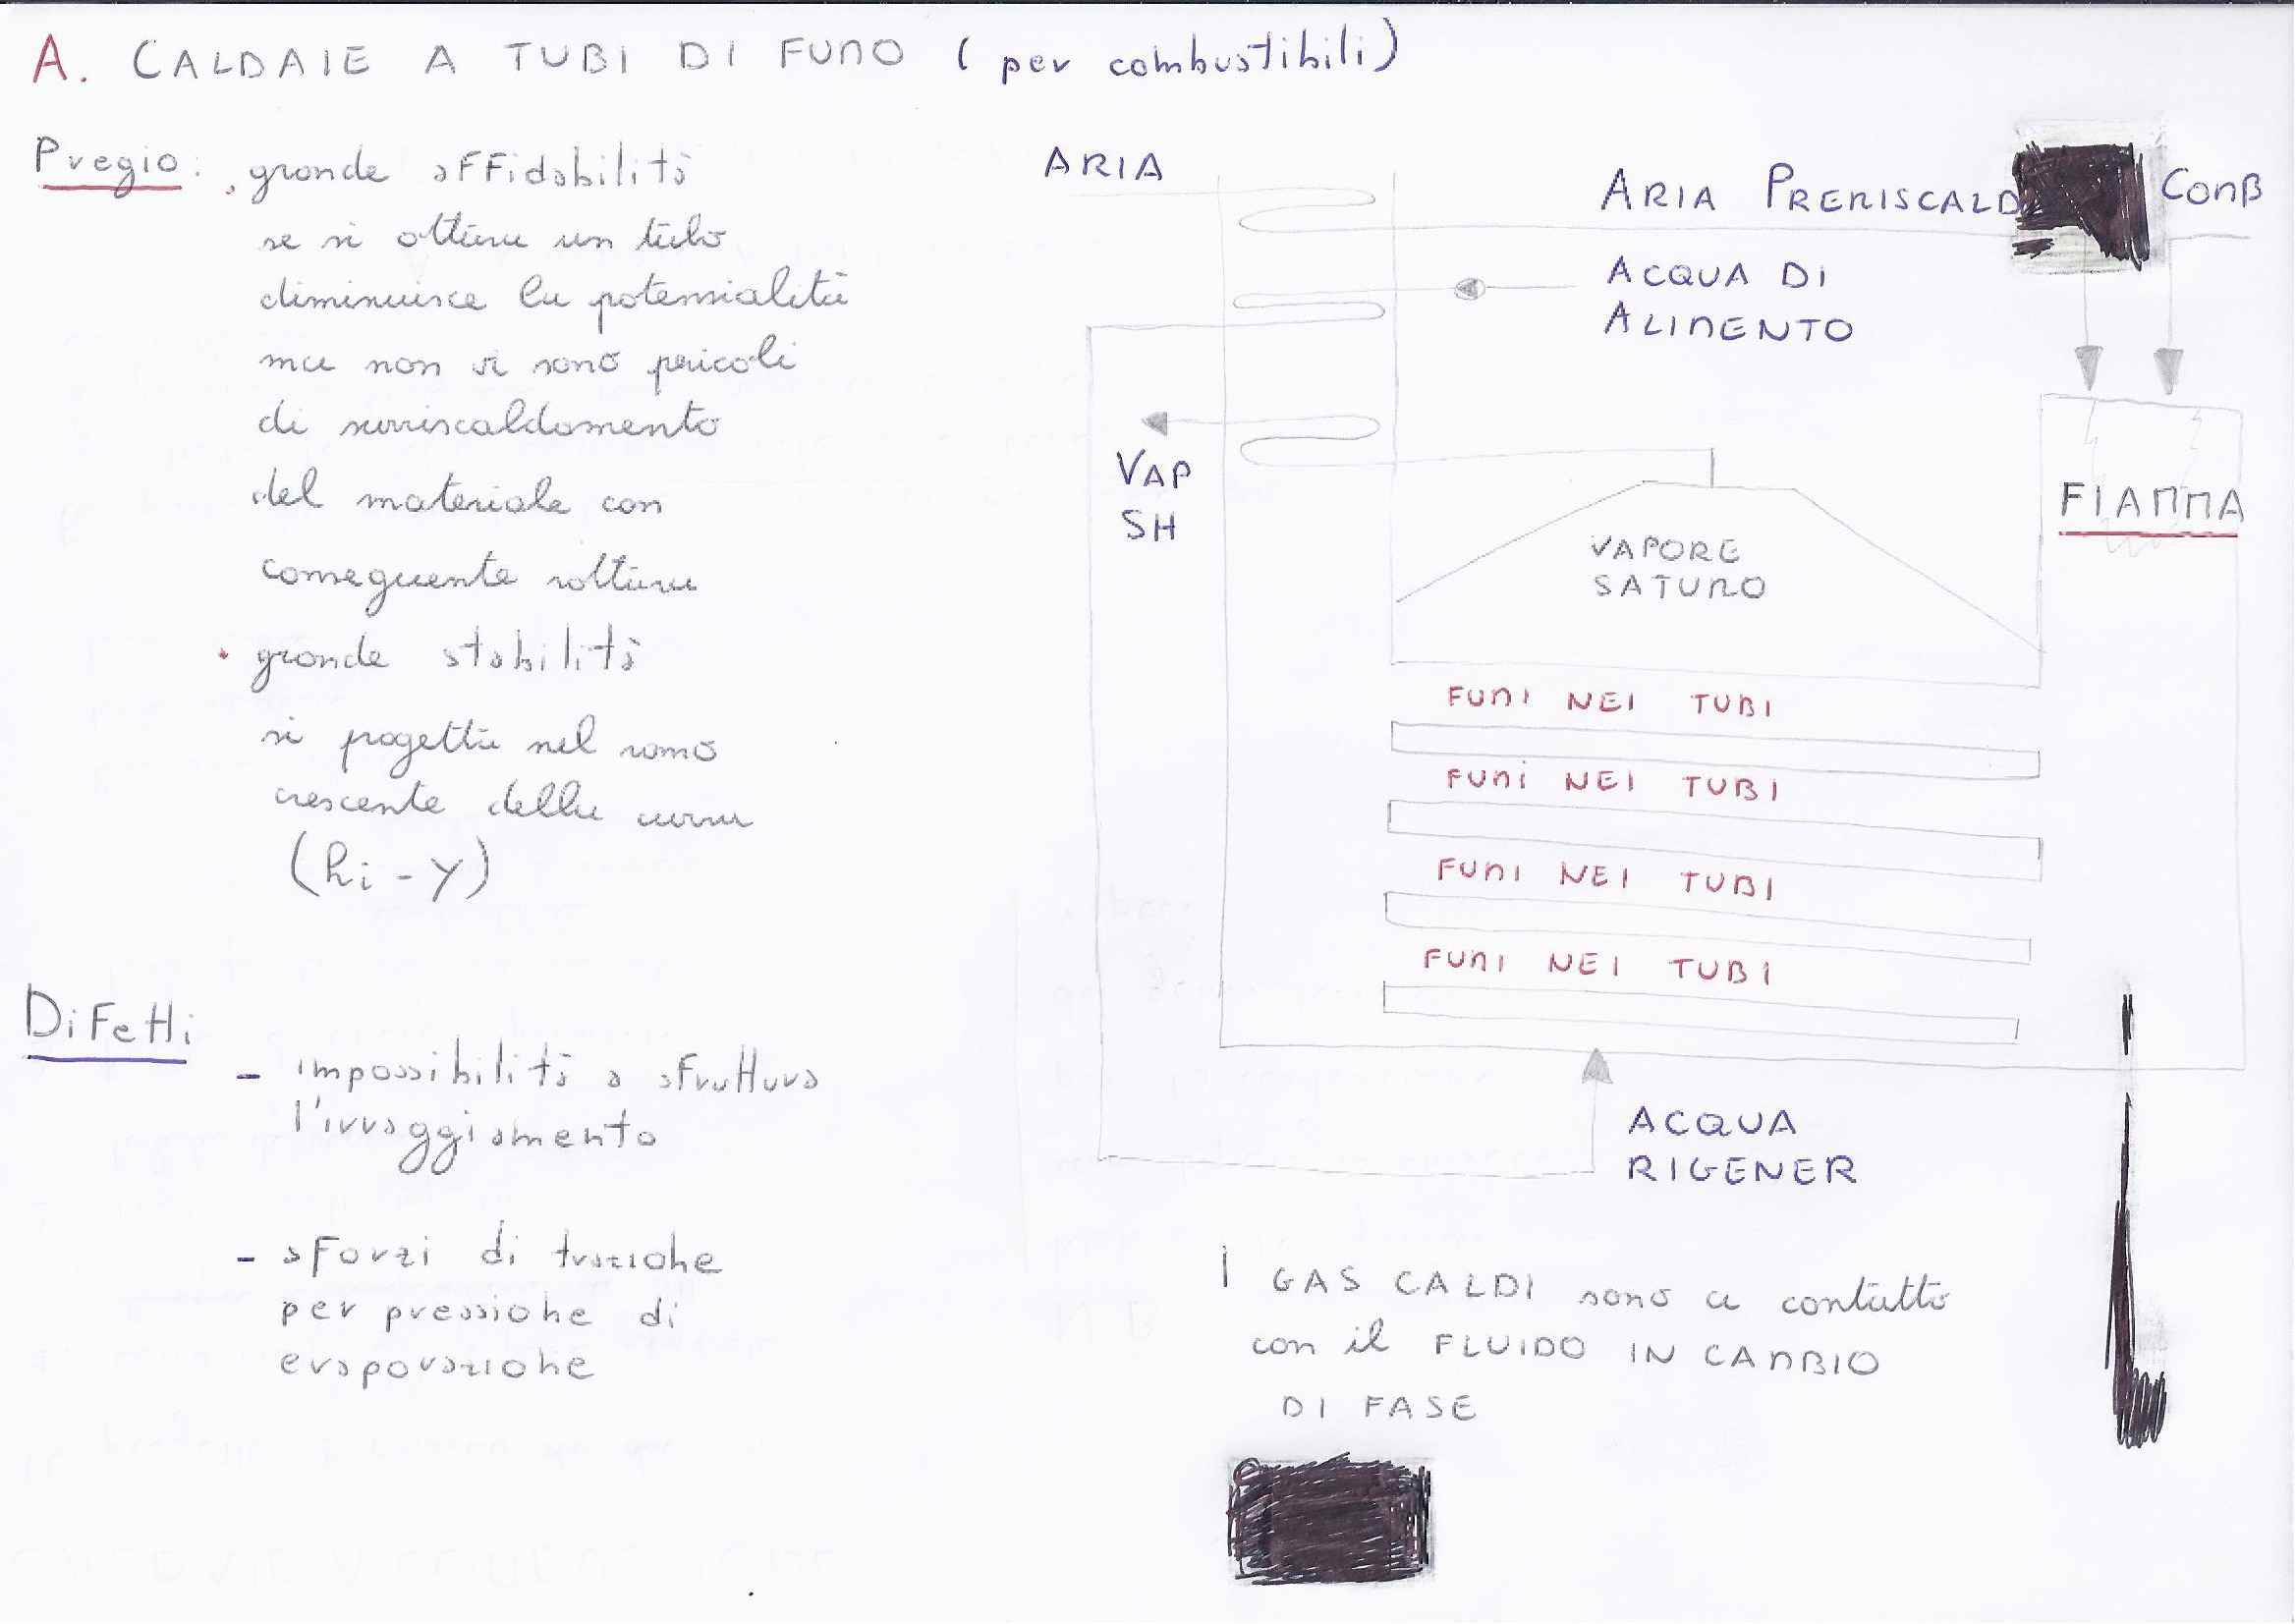 A. CALDAIE A TUBI DI FUMO (per combustibili)
Pregio: . grande affidabilità
se si ottura un tubo
diminuisce la potenzialità
ma non vi sono pericoli
di surriscaldamento
del materiale con
conseguente rottura
• grande stabilità
si progetta nel ramo
crescente della curva
(hi - y)
Difetti
- impossibilità a sfruttura
l'irraggiamento
- sforzi di trazione
per pressione di
evaporazione
ARIA
ARIA PRERISCALD
COMB
ACQUA DI
ALIMENTO
VAP
SH
FIAMMA
VAPORE
SATURO
FUMI NEI TUBI
FUMI NEI TUBI
FUMI NEI TUBI
FUMI NEI TUBI
ACQUA
RIGENER
I GAS CALDI sono a contatto
con il FLUIDO IN CAMBIO
DI FASE